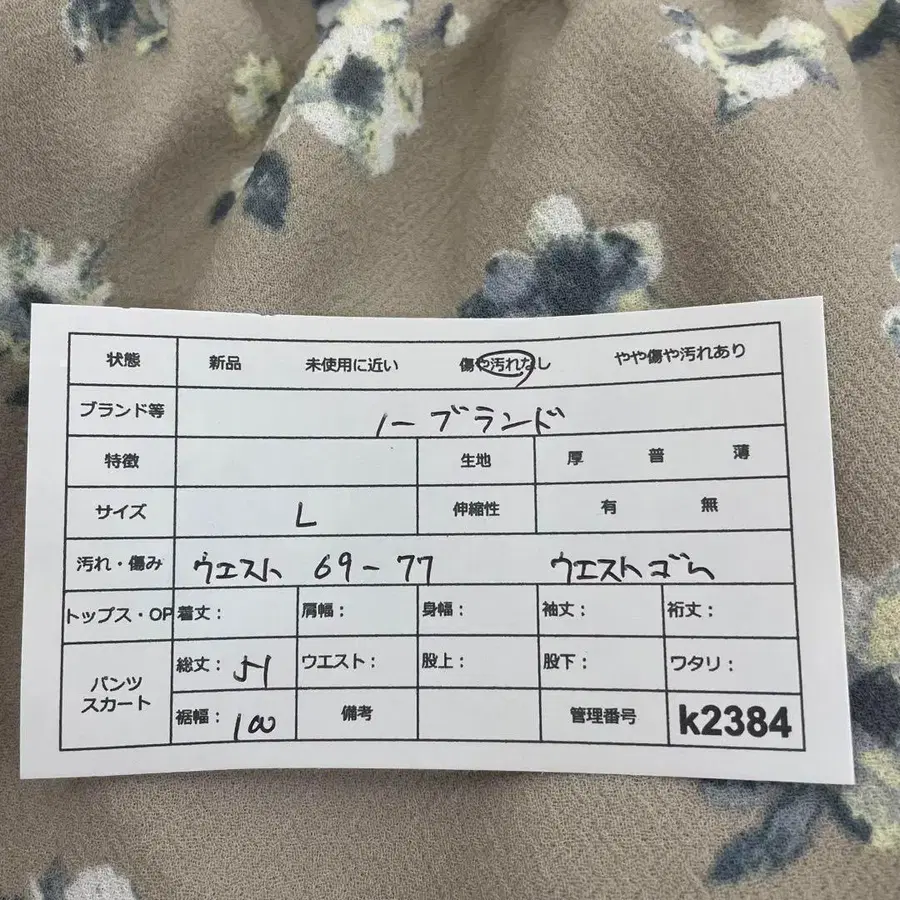 状態 新品 未使用に近い 傷や汚れなし やや傷や汚れあり
ブランド等 ノーブランド
特徴 生地 厚 普 薄
サイズ L 伸縮性 有 無
汚れ・傷み ウエスト 69-77 ウエストゴム
トップス・OP 着丈: 肩幅: 身幅: 袖丈: 裄丈:
パンツ スカート 総丈: 51 ウエスト: 股上: 股下: ワタリ:
裾幅: 100 備考 管理番号 k2384